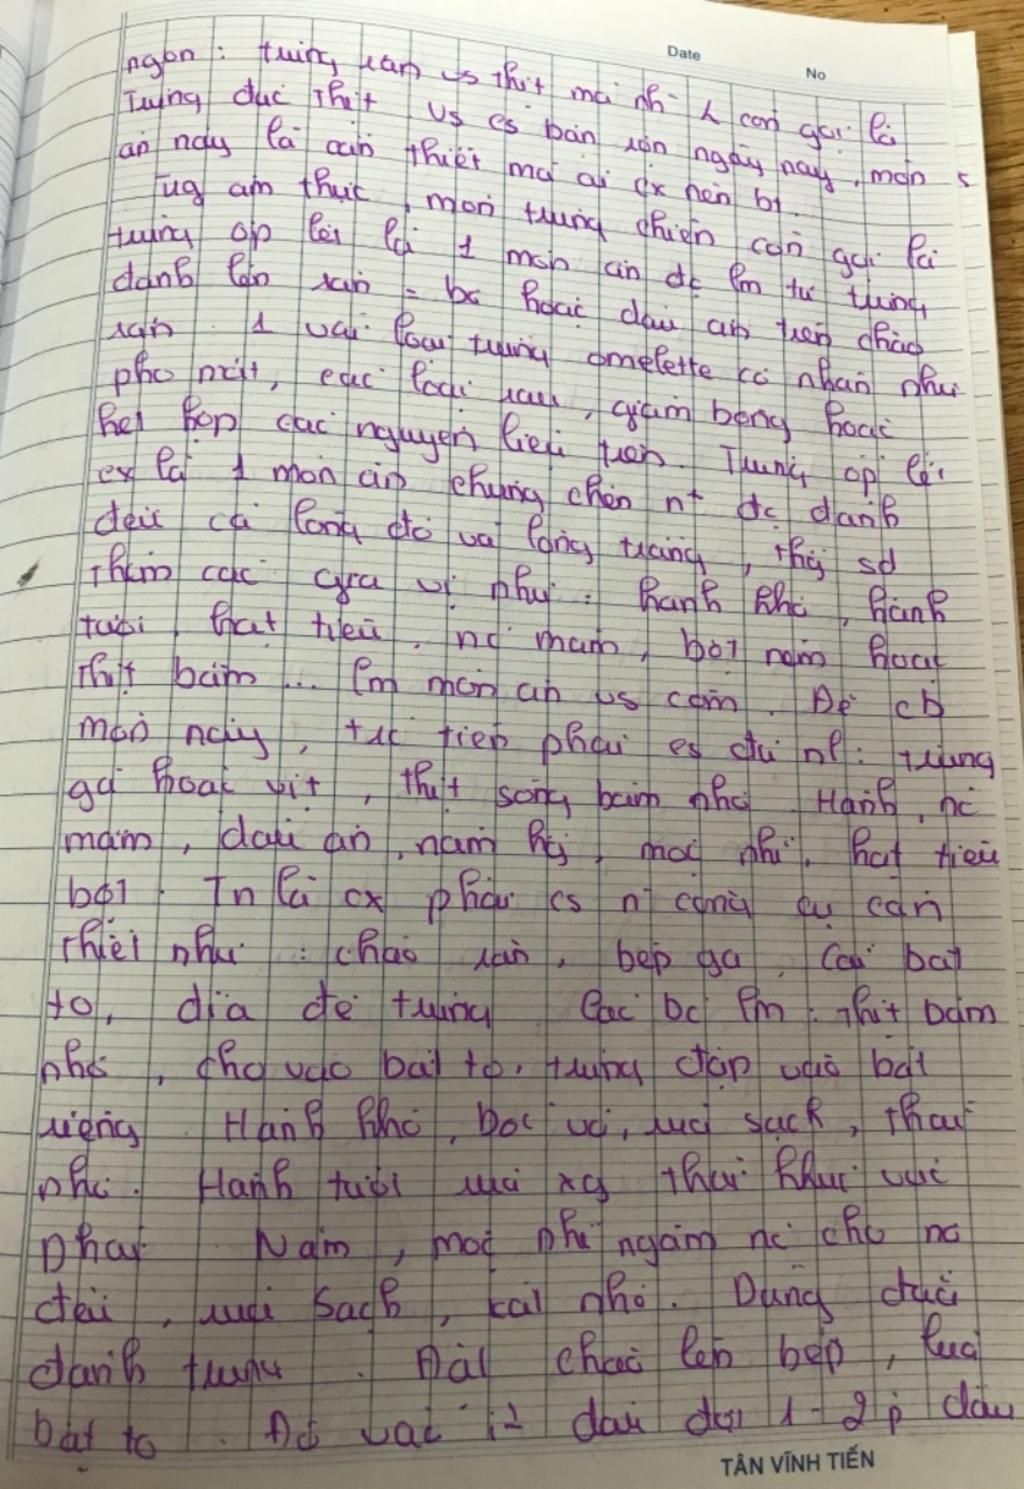 Date
No
ngon : trứng rán vs thịt mà nh 2 con gọi là
Trứng đúc thịt vs cs bản rộn ngày nay, món
ăn này là cần thiết mà ai cx nên bt.
Trg ẩm thực, món trứng chiên còn gọi là
trứng ốp lết là 1 món ăn đc lm từ trứng
đánh lên rán = bơ hoặc dầu ăn trên chảo
rán. 1 vài loại trứng omelette có nhân như
pho mát, các loại rau, giăm bông hoặc
kết hợp các nguyên liệu trên. Trứng ốp lết
cx là 1 món ăn chưng chên nt đc đánh
đều cả lòng đỏ và lòng trắng, thg sd
thêm các gia vị như : hành khô, hành
tươi, hạt tiêu, nc mắm, bột nấm hoặc
thịt băm ... lm món ăn vs cơm. Để cb
món này, trc tiên phải cs đủ nl : trứng
gà hoặc vịt, thịt sống băm nhỏ Hành, nc
mắm, dầu ăn, nấm hg, mộc nhĩ, hạt tiêu
bột. Tn là cx phải cs n công cụ cần
thiết như : chảo rán, bếp ga, cái bát
to, dĩa để trứng Các bc lm : Thịt băm
nhỏ, cho vào bát to, trứng đập vào bát
riêng. Hành khô, bóc vỏ, rửa sạch, thái
nhỏ. Hành tươi rửa xg thái khúc vừa
phải Nấm, mộc nhĩ ngâm nc cho nở
đều, rửa sạch, cắt nhỏ. Dùng đũa
đánh trứng. Đặt chảo lên bếp, lửa
bật to. Đổ vào ít dầu đợi 1-2 p dầu
TÂN VĨNH TIẾN